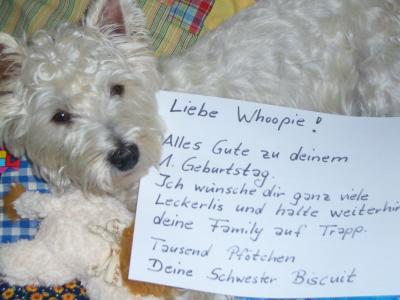 Liebe Whoopie!
Alles Gute zu deinem
1. Geburtstag.
Ich wünsche dir ganz viele
Leckerlis und halte weiterhin
deine Family auf Trapp.
Tausend Pfötchen
Deine Schwester Biscuit